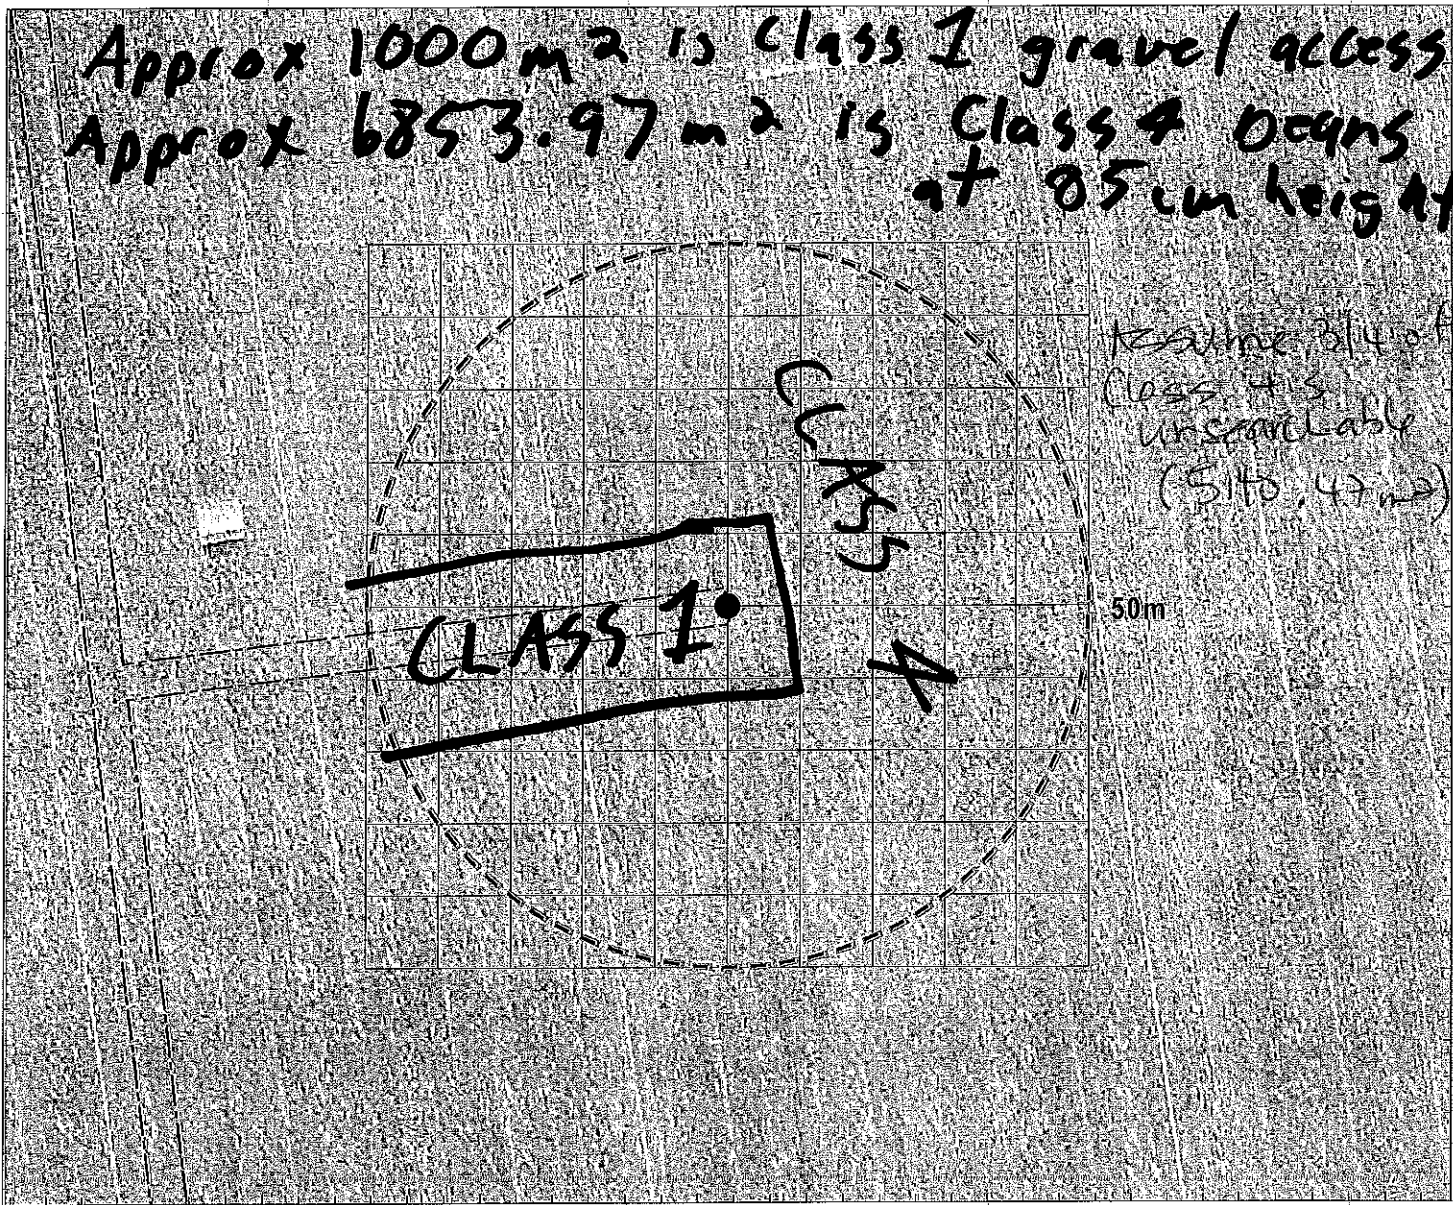 Approx 1000 m² is Class 1 gravel access
Approx 6853.97 m² is Class 4 Beans
at 85 cm height
Assume 3/4 of
Class 4 is
unsearchable
(5140.47 m²)
CLASS
4
CLASS 1
50m